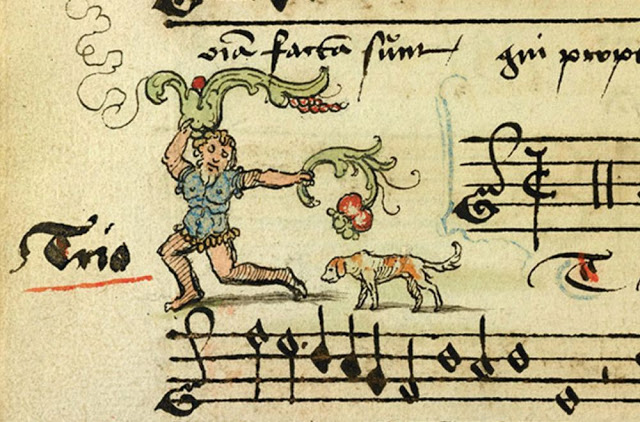 oi͞a facta sūnt qui prope
Trio
T